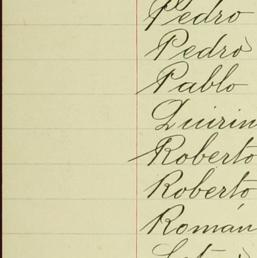 Pedro
Pedro
Pablo
Quirin
Roberto
Roberto
Román